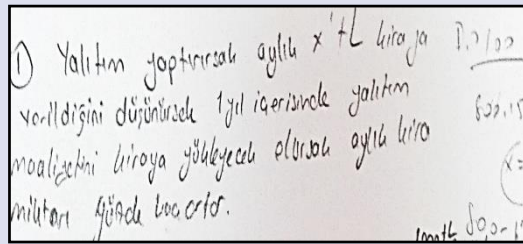 ① Yalıtım yaptırırsak aylık x'TL kiraya
verildiğini düşünürsek 1 yıl içerisinde yalıtım
maaliyetini kiraya yükleyecek olursak aylık kira
miktarı yüzde kaç artar.